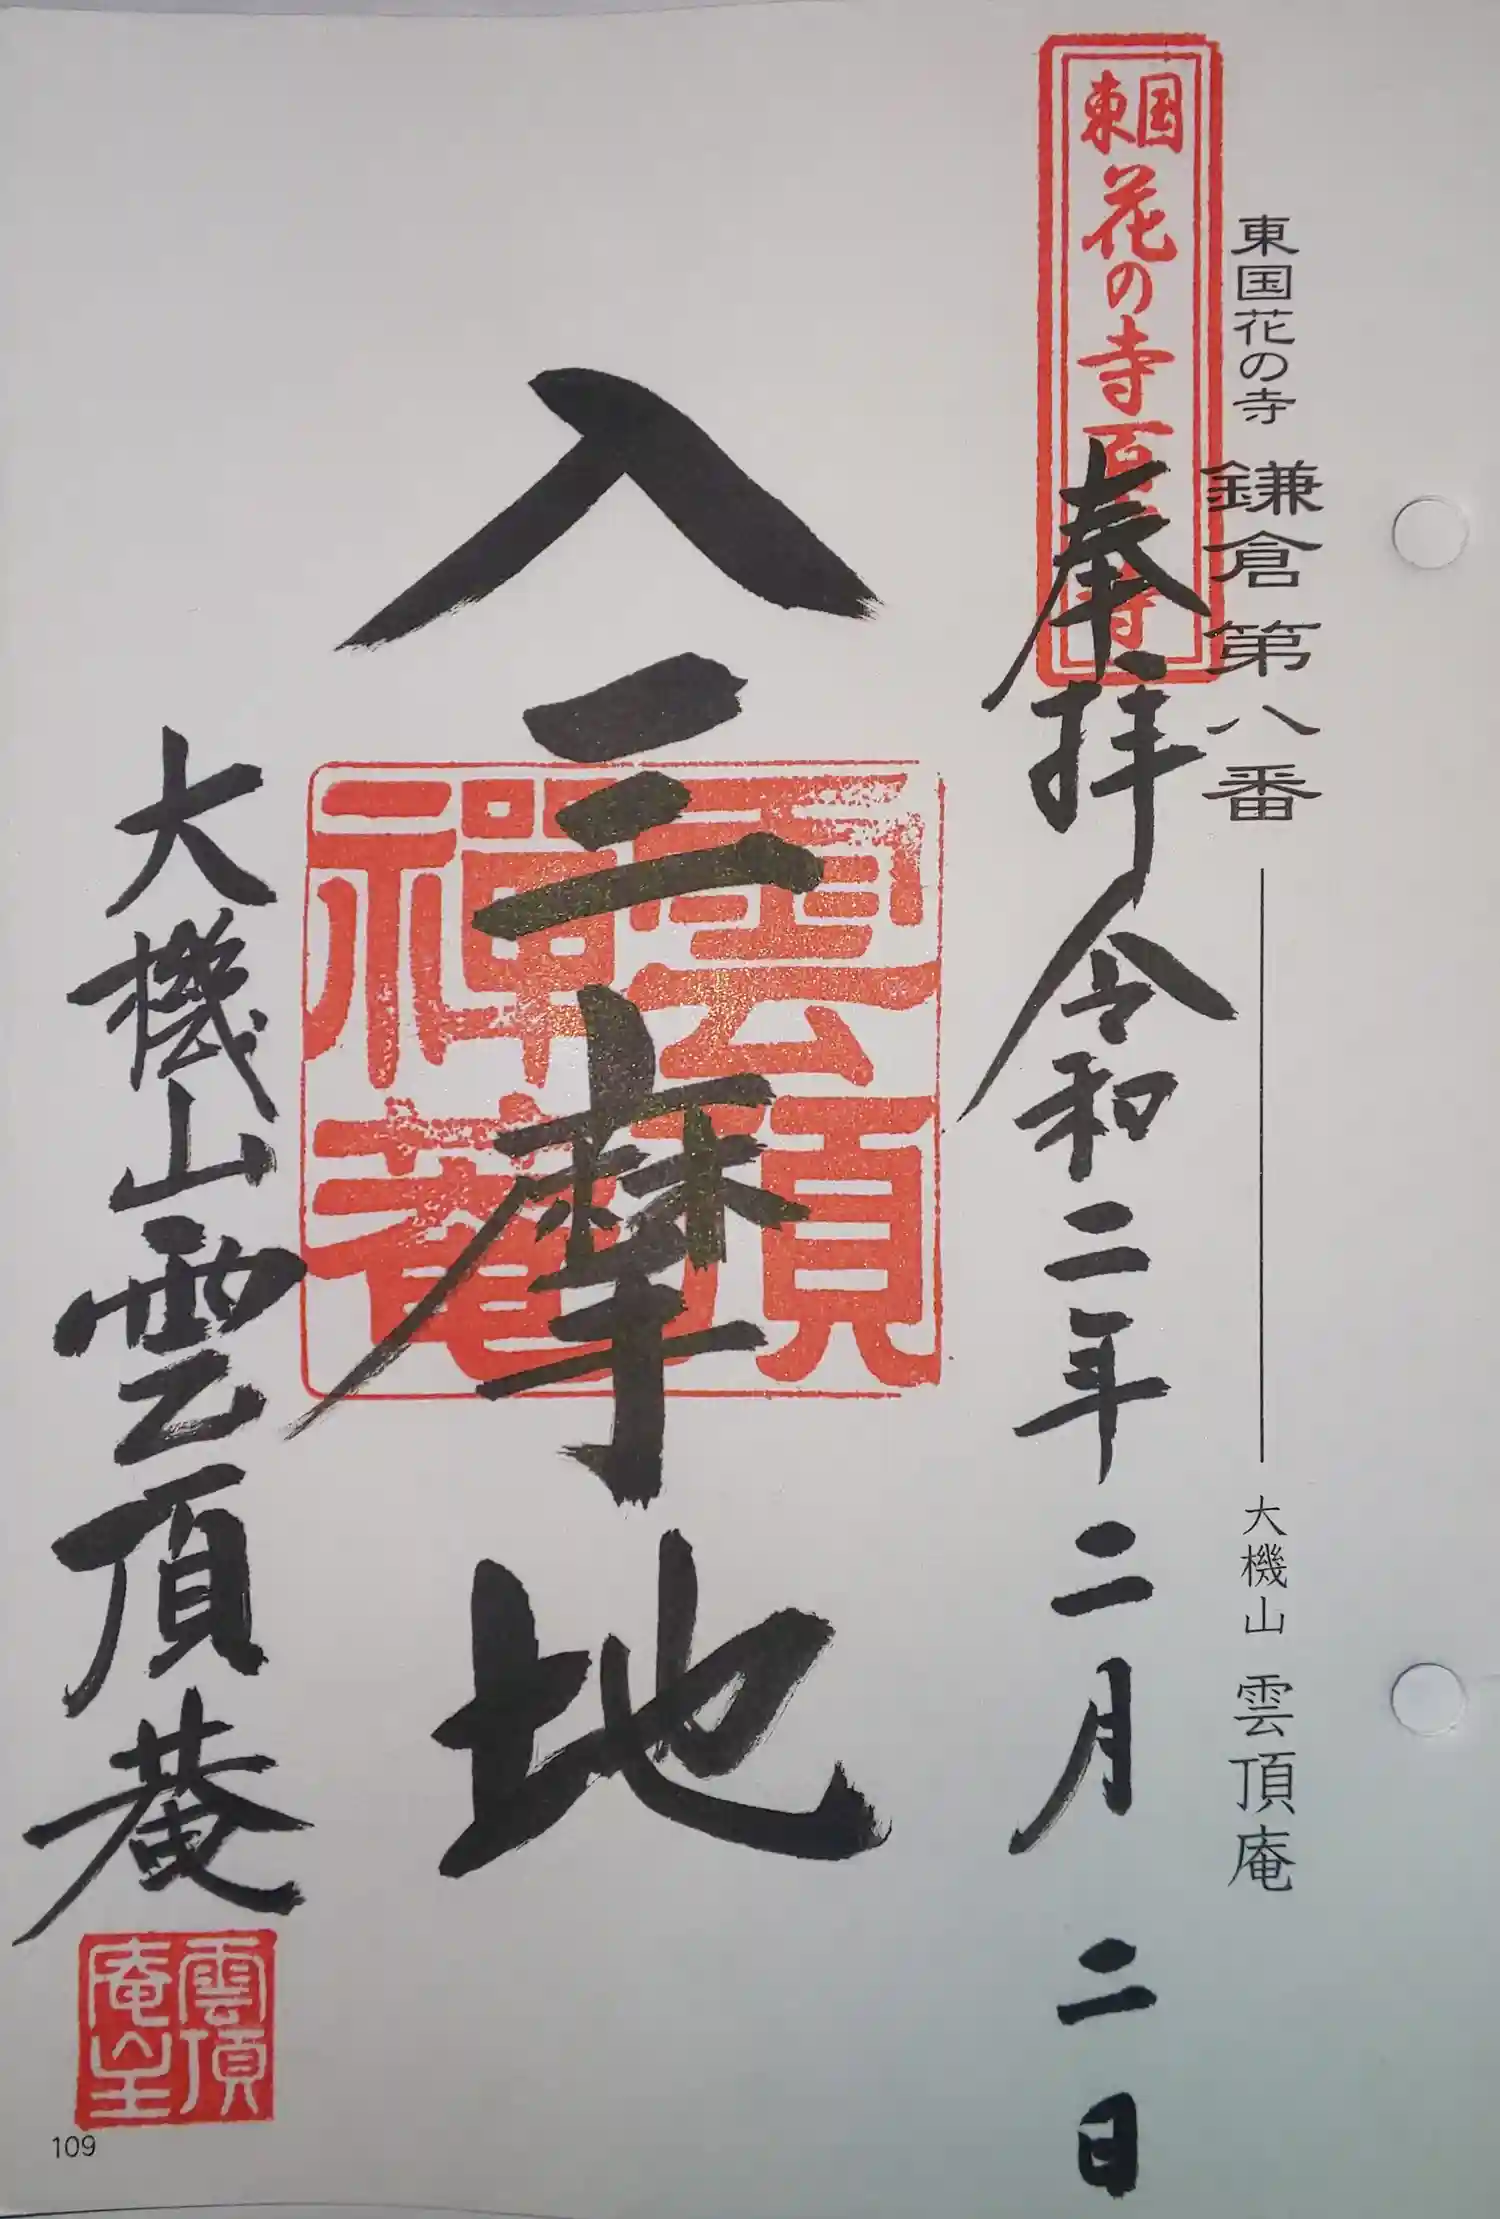 東国花の寺 鎌倉第八番 大機山 雲頂庵
東国
花の寺百
寺
奉拝 令和二年二月二日
入三摩地
雲頂
禅菴
大機山 雲頂菴
雲頂
庵主
109